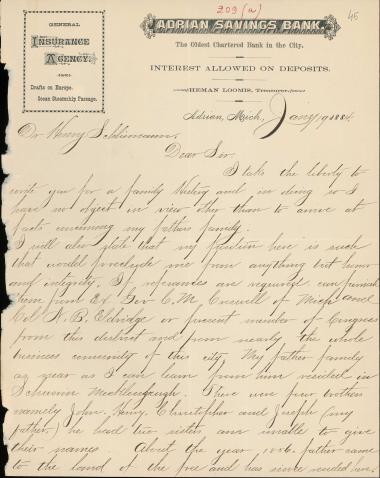 209 (a)
45
GENERAL
INSURANCE
AGENCY.
—AND—
Drafts on Europe.
Ocean Steamship Passage.
ADRIAN SAVINGS BANK.
The Oldest Chartered Bank in the City.
INTEREST ALLOWED ON DEPOSITS.
HEMAN LOOMIS, Treasurer.
Adrian, Mich, Jany 9 1884
Dr Henry Schliemann.
Dear Sir
I take the liberty to
write you for a family History and in doing so I
have no object in view other than to arrive at
facts concerning my fathers family.
I will also state that my position here is such
that would preclude me from anything but honor
and integrity. If references are required can furnish
them from Ex Gov C. M. Croswell of Mich and
Col N. B. Eldridge or present member of Congress
from this district and from nearly the whole
business community of this city. My father family
as near as I can learn from him resided in
Schwerin Mecklenburgh. There were four brothers
namely John. Henry. Christopher and Joseph (my
father.) he had two sisters are unable to give
their names. About the year 1836 father came
to the land of the free and has since resided here.